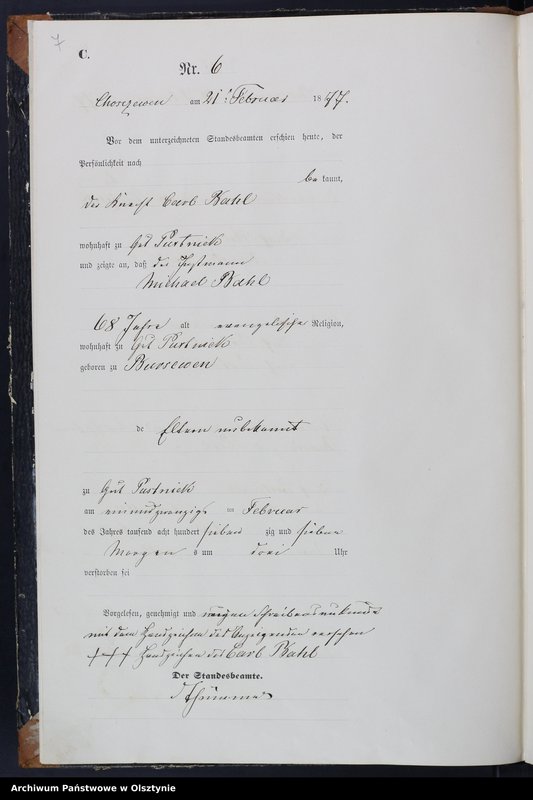 7
C.
Nr. 6
Choszewen am 21 t Februar 1877.
Vor dem unterzeichneten Standesbeamten erschien heute, der
Persönlichkeit nach
be kannt,
der Knecht Carl Bahl
wohnhaft zu Gut Pustnick
und zeigte an, daß der
Michael Bahl
68 Jahre alt evangelische Religion,
wohnhaft zu Gut Pustnick
geboren zu Bussewen
de Eltern unbekannt
zu Gut Pustnick
am einundzwanzigs ten Februar
des Jahres tausend acht hundert sieben zig und sieben
Morgen s um drei Uhr
verstorben sei
Vorgelesen, genehmigt und wegen Schreibensunkunde
mit dem Handzeichen des Anzeigenden versehen
+++ Handzeichen des Carl Bahl
Der Standesbeamte.
Archiwum Państwowe w Olsztynie